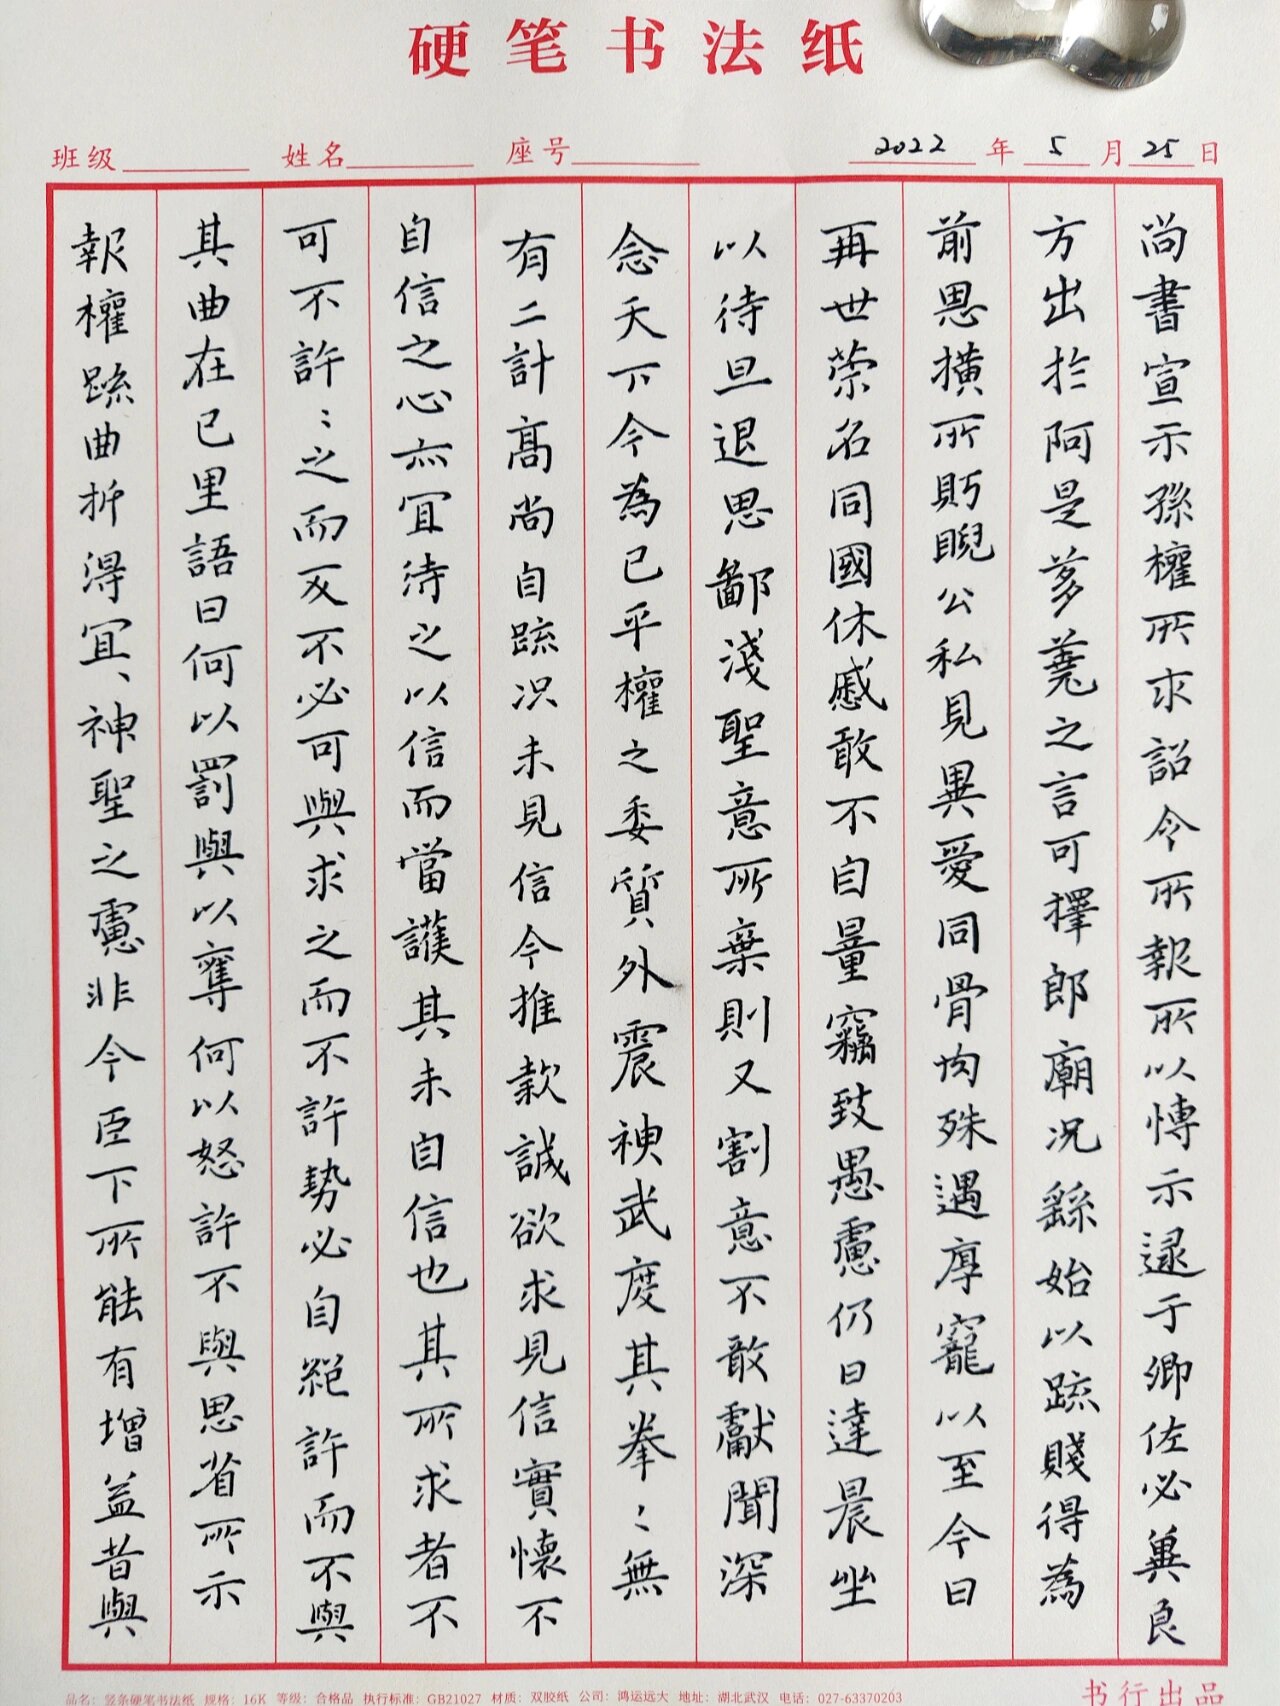 硬笔书法纸
班级 姓名 座号 2022年5月25日
尚書宣示孫權所求詔令所報所以博示逮于卿佐必冀良
方出於阿是芻蕘之言可擇郎廟況繇始以疏賤得為
前恩橫所眄睨公私見異愛同骨肉殊遇厚寵以至今日
再世榮名同國休慼敢不自量竊致愚慮仍日達晨坐
以待旦退思鄙淺聖意所棄則又割意不敢獻聞深
念天下今為已平權之委質外震神武度其拳〻無
有二計高尚自疏況未見信今推款誠欲求見信實懷不
自信之心亦宜待之以信而當護其未自信也其所求者不
可不許〻之而反不必可與求之而不許勢必自絕許而不與
其曲在已里語曰何以罰與以奪何以怒許不與思省所示
報權疏曲折得宜、神聖之慮非今臣下所能有增益昔與
品名：竖条硬笔书法纸 规格：16K 等级：合格品 执行标准：GB21027 材质：双胶纸 公司：鸿运远大 地址：湖北武汉 电话：027-63370203
书行出品